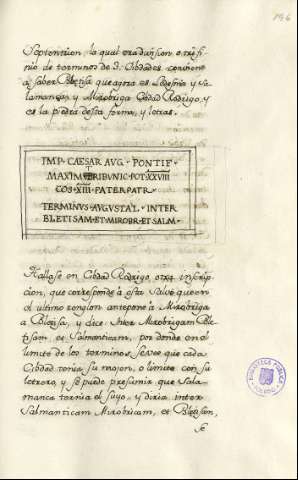 196
Septentrion la qual era diuision, o trefi-
nio de terminos de 3. Cibdades conviene
a saber Bletisa que agora es Ledesma y Sa-
lamanca, y Mirobriga Cibdad Rodrigo, y
es la piedra desta forma, y letras.
IMP· CAESAR AVG · PONTIF·
MAXIM·TRIBVNIC·POT·XXVIII
COS·XIII·PATER PATR·
TERMINVS·AVGVSTAL· INTER
BLETISAM·ET·MIROBR·ET·SALM·
Hallase en Cibdad Rodrigo otra inscrip-
cion, que corresponde a esta Salvo que en
el ultimo renglon antepone a Mirobriga
a Bletisa, y dice Inter Mirobrigam Ble-
tisam, et Salmanticam, por donde en el
limite de los terminos se vee que cada
Cibdad tenia su mojon, o limite con su
letrero, y se puede presumir que Sala-
manca tornia el suyo, y diria inter
Salmanticam Mirobricam, et Bletisam,
se
BIBLIOTECA PUBLICA
TOLEDO